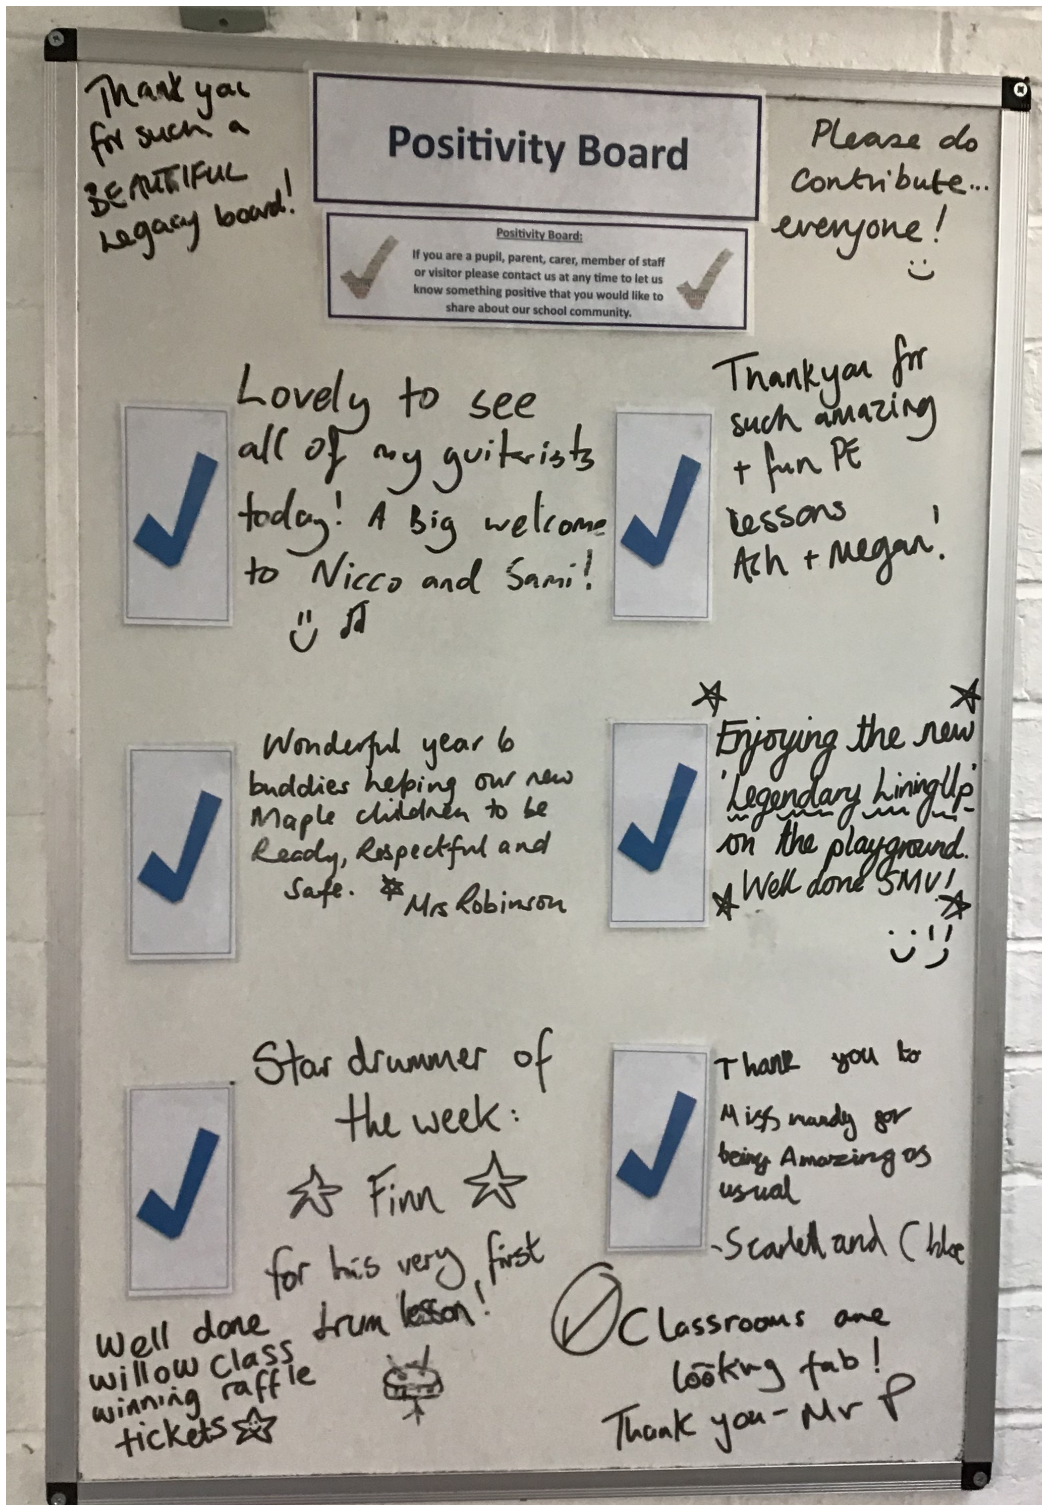 Thank you
for such a
BEAUTIFUL
Legacy board!
Positivity Board
Please do
contribute...
everyone!
Positivity Board:
If you are a pupil, parent, carer, member of staff
or visitor please contact us at any time to let us
know something positive that you would like to
share about our school community.
Lovely to see
all of my guitarists
today! A Big welcome
to Nicco and Sami!
Thankyou for
such amazing
+ fun PE
lessons
Ash + Megan!
Wonderful year 6
buddies helping our new
Maple children to be
Ready, Respectful and
Safe.
Mrs Robinson
Enjoying the new
'Legendary LiningUp'
on the playground.
Well done SMV!
Star drummer of
the week:
Finn
for his very first
drum lesson!
Thank you to
Miss mandy for
being Amazing as
usual
-Scarlett and Chloe
Well done
willow class
winning raffle
tickets
Classrooms are
looking fab!
Thank you - Mr P